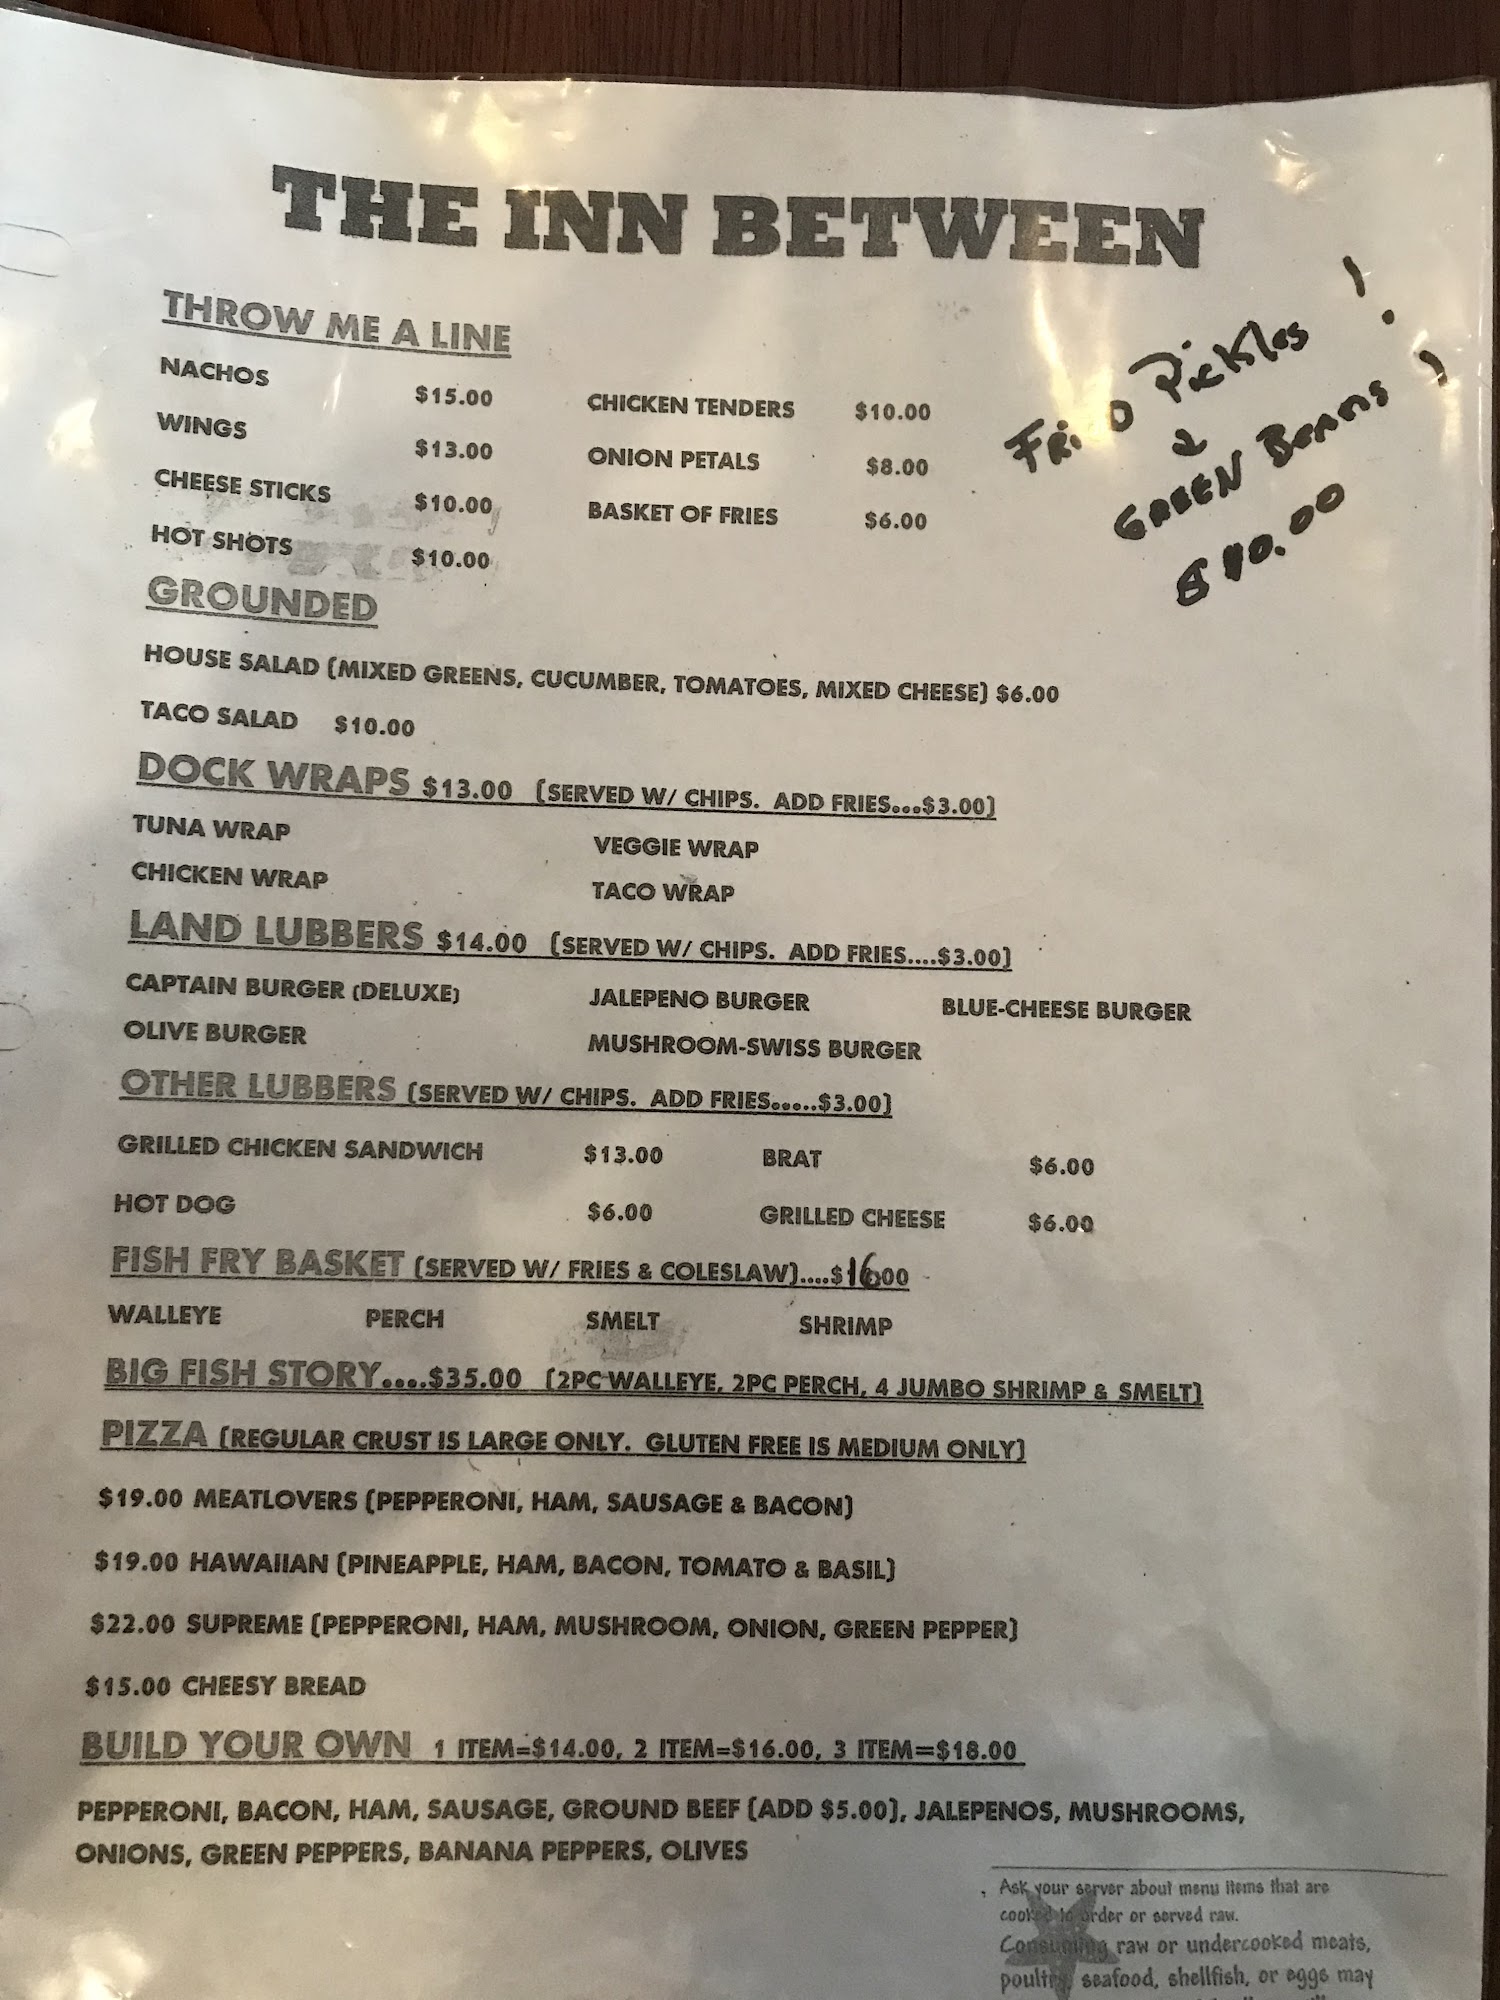 THE INN BETWEEN
THROW ME A LINE
NACHOS $15.00 CHICKEN TENDERS $10.00
WINGS $13.00 ONION PETALS $8.00
CHEESE STICKS $10.00 BASKET OF FRIES $6.00
HOT SHOTS $10.00
FRIED Pickles !
&
GREEN Beans !
$10.00
GROUNDED
HOUSE SALAD (MIXED GREENS, CUCUMBER, TOMATOES, MIXED CHEESE) $6.00
TACO SALAD $10.00
DOCK WRAPS $13.00 (SERVED W/ CHIPS. ADD FRIES...$3.00)
TUNA WRAP VEGGIE WRAP
CHICKEN WRAP TACO WRAP
LAND LUBBERS $14.00 (SERVED W/ CHIPS. ADD FRIES....$3.00)
CAPTAIN BURGER (DELUXE) JALEPENO BURGER BLUE-CHEESE BURGER
OLIVE BURGER MUSHROOM-SWISS BURGER
OTHER LUBBERS (SERVED W/ CHIPS. ADD FRIES.....$3.00)
GRILLED CHICKEN SANDWICH $13.00 BRAT $6.00
HOT DOG $6.00 GRILLED CHEESE $6.00
FISH FRY BASKET (SERVED W/ FRIES & COLESLAW)....$16.00
WALLEYE PERCH SMELT SHRIMP
BIG FISH STORY....$35.00 (2PC WALLEYE, 2PC PERCH, 4 JUMBO SHRIMP & SMELT)
PIZZA (REGULAR CRUST IS LARGE ONLY. GLUTEN FREE IS MEDIUM ONLY)
$19.00 MEATLOVERS (PEPPERONI, HAM, SAUSAGE & BACON)
$19.00 HAWAIIAN (PINEAPPLE, HAM, BACON, TOMATO & BASIL)
$22.00 SUPREME (PEPPERONI, HAM, MUSHROOM, ONION, GREEN PEPPER)
$15.00 CHEESY BREAD
BUILD YOUR OWN 1 ITEM=$14.00, 2 ITEM=$16.00, 3 ITEM=$18.00
PEPPERONI, BACON, HAM, SAUSAGE, GROUND BEEF (ADD $5.00), JALEPENOS, MUSHROOMS,
ONIONS, GREEN PEPPERS, BANANA PEPPERS, OLIVES
Ask your server about menu items that are
cooked to order or served raw.
Consuming raw or undercooked meats,
poultry, seafood, shellfish, or eggs may